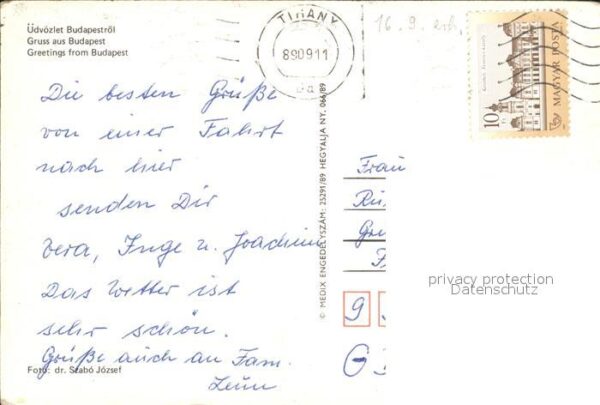 Üdvözlet Budapestről
Gruss aus Budapest
Greetings from Budapest
TIHANY
89 09 11
16. 9. erh.
10
MAGYAR POSTA
Die besten Grüße
von einer Fahrt
nach hier
senden Dir
Vera, Inge u. Joachim
Das Wetter ist
sehr schön.
Grüße auch an Fam.
Foto: dr. Szabó József
© MEDIX ENGEDÉLYSZÁM: 25291/89 HEGYALJA NY. 066/89
Frau
9
privacy protection
Datenschutz